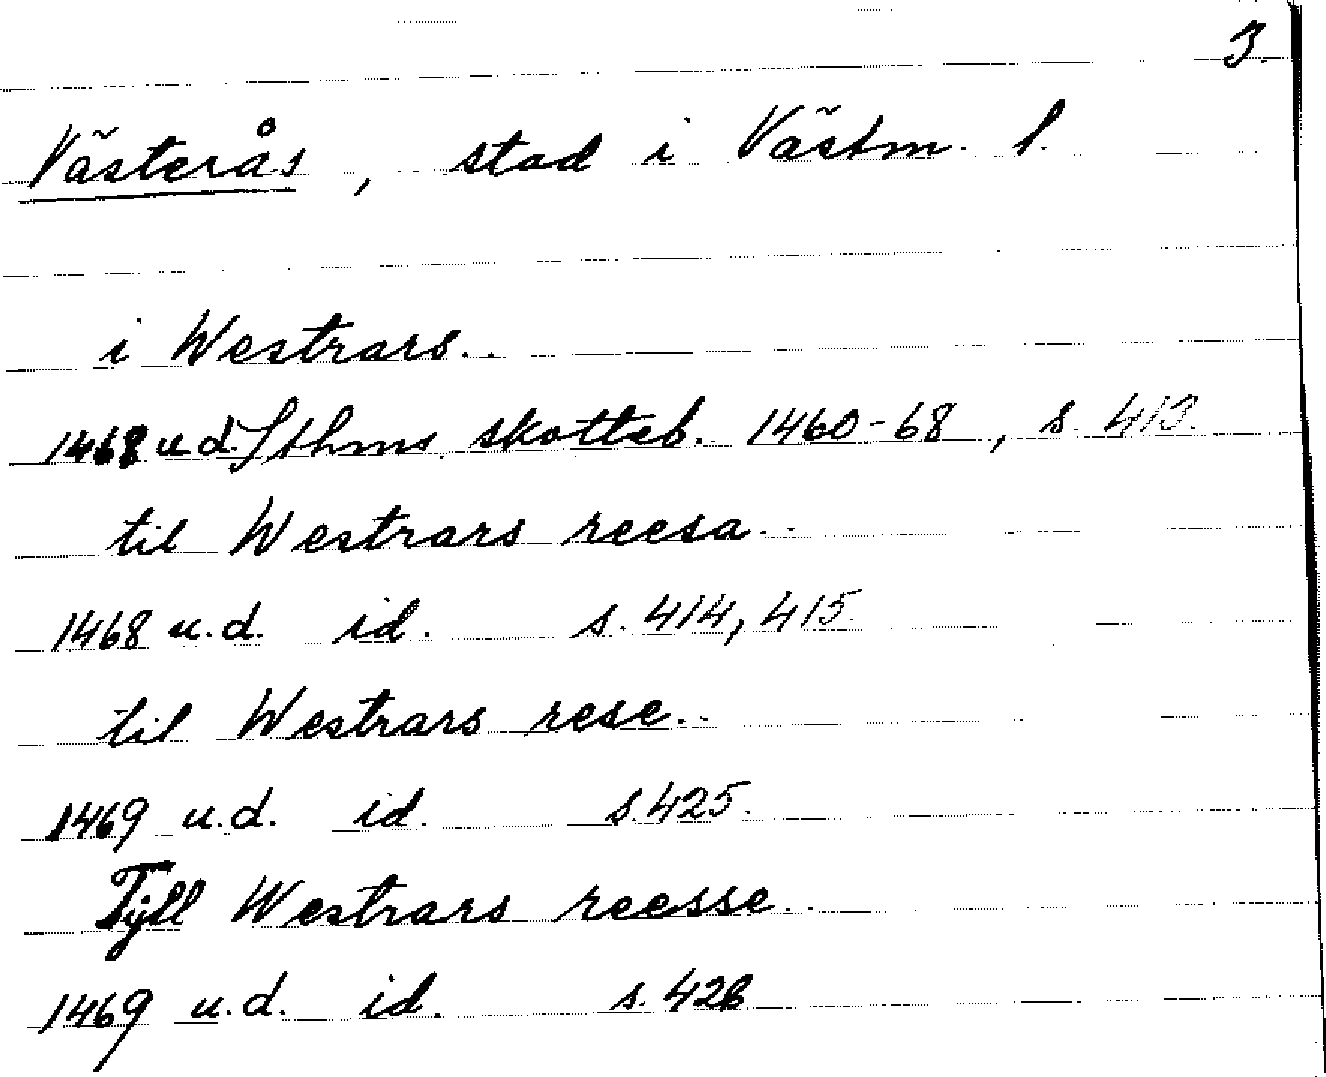 3.
Västerås, stad i Västm. l.
i Westrars..
1468 u.d. Sthms skotteb. 1460-68, s. 413.
til Westrars reesa..
1468 u.d. id. s. 414, 415.
til Westrars rese..
1469 u.d. id. s. 425.
Tyll Westrars reesse..
1469 u.d. id. s. 426